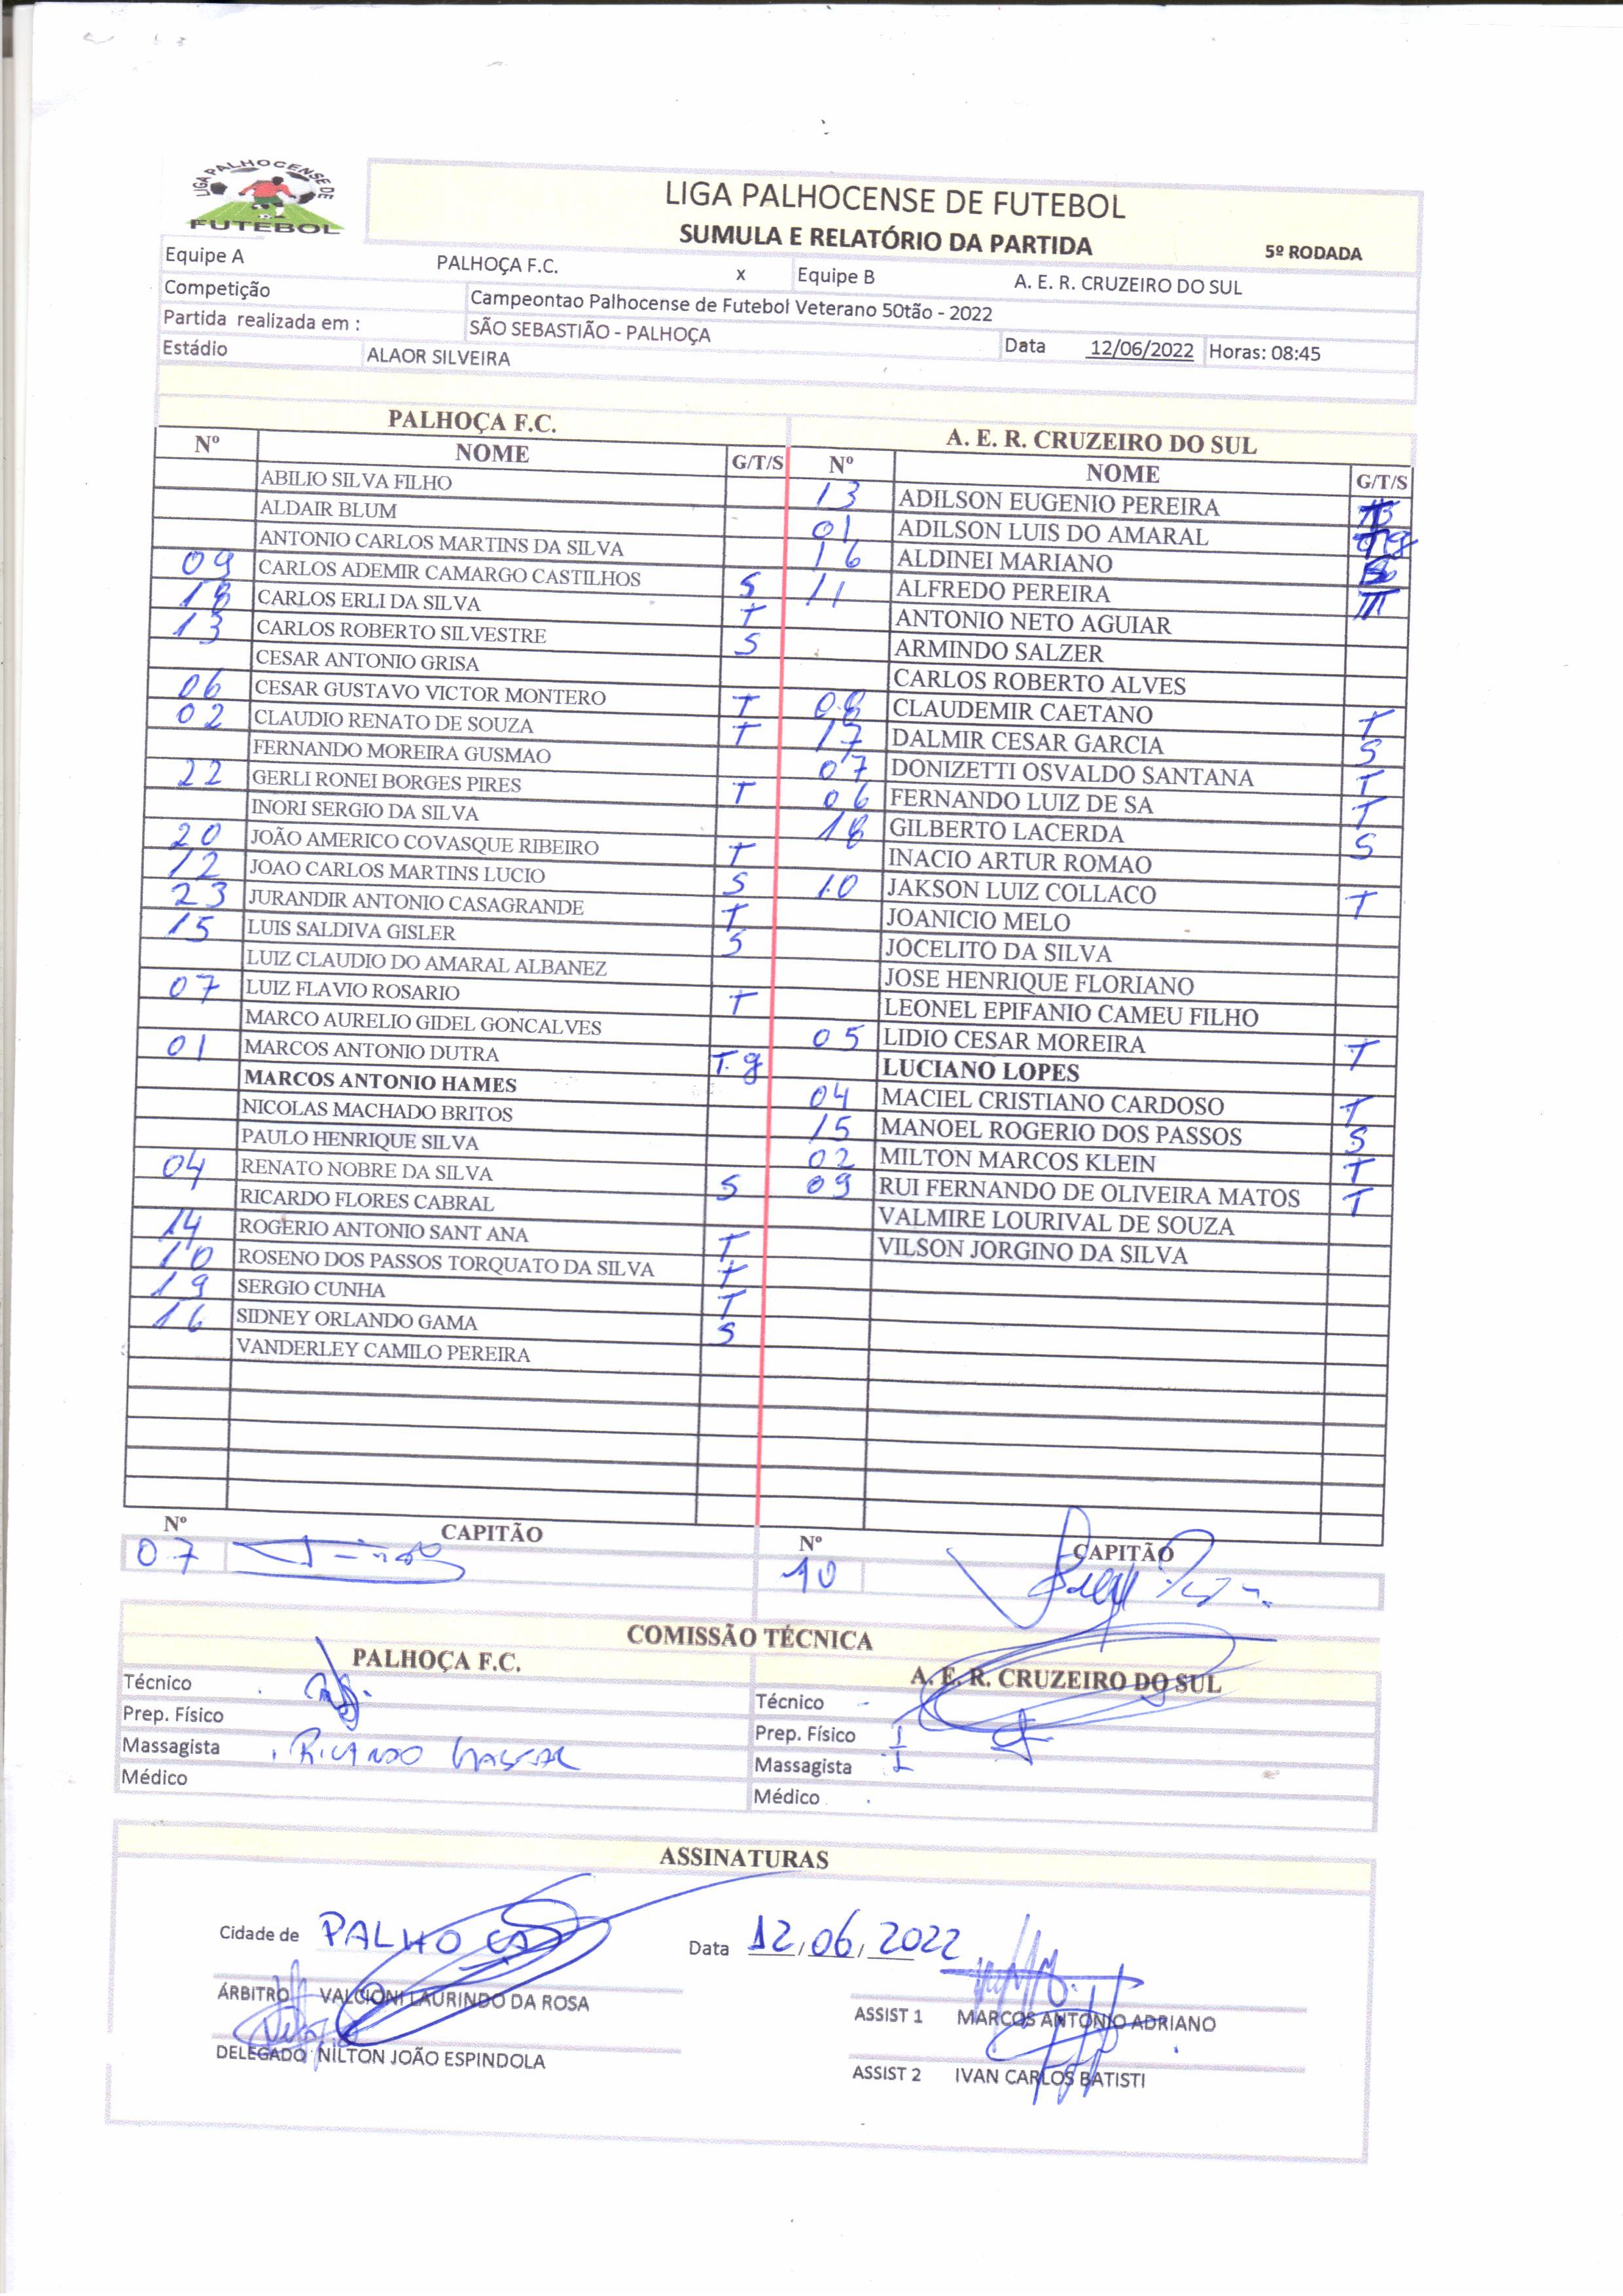 LIGA PALHOCENSE DE
FUTEBOL
LIGA PALHOCENSE DE FUTEBOL
SUMULA E RELATÓRIO DA PARTIDA 5º RODADA
Equipe A PALHOÇA F.C. x Equipe B A. E. R. CRUZEIRO DO SUL
Competição Campeontao Palhocense de Futebol Veterano 50tão - 2022
Partida realizada em : SÃO SEBASTIÃO - PALHOÇA Data 12/06/2022 Horas: 08:45
Estádio ALAOR SILVEIRA
PALHOÇA F.C.
Nº NOME G/T/S
ABILIO SILVA FILHO
ALDAIR BLUM
ANTONIO CARLOS MARTINS DA SILVA
09 CARLOS ADEMIR CAMARGO CASTILHOS S
18 CARLOS ERLI DA SILVA T
13 CARLOS ROBERTO SILVESTRE S
CESAR ANTONIO GRISA
06 CESAR GUSTAVO VICTOR MONTERO T
02 CLAUDIO RENATO DE SOUZA T
FERNANDO MOREIRA GUSMAO
22 GERLI RONEI BORGES PIRES T
INORI SERGIO DA SILVA
20 JOÃO AMERICO COVASQUE RIBEIRO T
12 JOAO CARLOS MARTINS LUCIO S
23 JURANDIR ANTONIO CASAGRANDE T
15 LUIS SALDIVA GISLER S
LUIZ CLAUDIO DO AMARAL ALBANEZ
07 LUIZ FLAVIO ROSARIO T
MARCO AURELIO GIDEL GONCALVES
01 MARCOS ANTONIO DUTRA T.g
MARCOS ANTONIO HAMES
NICOLAS MACHADO BRITOS
PAULO HENRIQUE SILVA
04 RENATO NOBRE DA SILVA S
RICARDO FLORES CABRAL
14 ROGERIO ANTONIO SANT ANA T
10 ROSENO DOS PASSOS TORQUATO DA SILVA T
19 SERGIO CUNHA T
16 SIDNEY ORLANDO GAMA S
VANDERLEY CAMILO PEREIRA
A. E. R. CRUZEIRO DO SUL
Nº NOME G/T/S
13 ADILSON EUGENIO PEREIRA
01 ADILSON LUIS DO AMARAL
16 ALDINEI MARIANO
11 ALFREDO PEREIRA
ANTONIO NETO AGUIAR
ARMINDO SALZER
CARLOS ROBERTO ALVES
08 CLAUDEMIR CAETANO T
17 DALMIR CESAR GARCIA S
07 DONIZETTI OSVALDO SANTANA T
06 FERNANDO LUIZ DE SA T
18 GILBERTO LACERDA S
INACIO ARTUR ROMAO
10 JAKSON LUIZ COLLACO T
JOANICIO MELO
JOCELITO DA SILVA
JOSE HENRIQUE FLORIANO
LEONEL EPIFANIO CAMEU FILHO
05 LIDIO CESAR MOREIRA T
LUCIANO LOPES
04 MACIEL CRISTIANO CARDOSO T
15 MANOEL ROGERIO DOS PASSOS S
02 MILTON MARCOS KLEIN T
09 RUI FERNANDO DE OLIVEIRA MATOS T
VALMIRE LOURIVAL DE SOUZA
VILSON JORGINO DA SILVA
Nº CAPITÃO Nº CAPITÃO
07 10
COMISSÃO TÉCNICA
PALHOÇA F.C. A. E. R. CRUZEIRO DO SUL
Técnico Técnico
Prep. Físico Prep. Físico
Massagista RICARDO Massagista
Médico Médico
ASSINATURAS
Cidade de PALHOÇA Data 12/06/2022
ÁRBITRO VALCIONI LAURINDO DA ROSA ASSIST 1 MARCOS ANTONIO ADRIANO
DELEGADO NILTON JOÃO ESPINDOLA ASSIST 2 IVAN CARLOS BATISTI